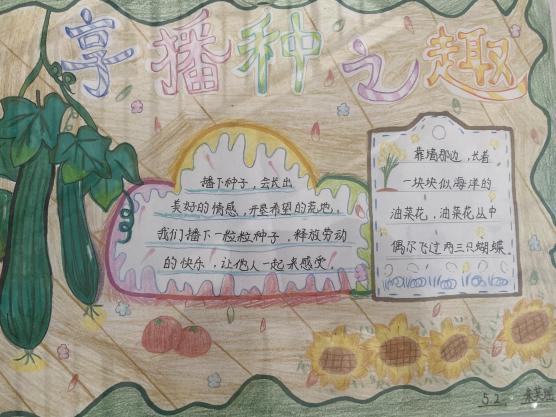 享播种之趣
播下种子,会长出
美好的情感,开垦希望的荒地,
我们播下一粒粒种子,释放劳动
的快乐,让他人一起来感受。
靠墙那边,长着
一块块似海洋的
油菜花,油菜花丛中
偶尔飞过两三只蝴蝶。
5.2.